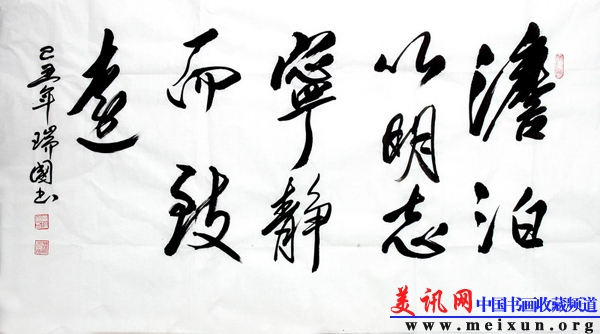 澹泊
以明志
寧静
而致
遠
己丑年瑞國书
美讯网
中国书画收藏频道
www.meixun.org